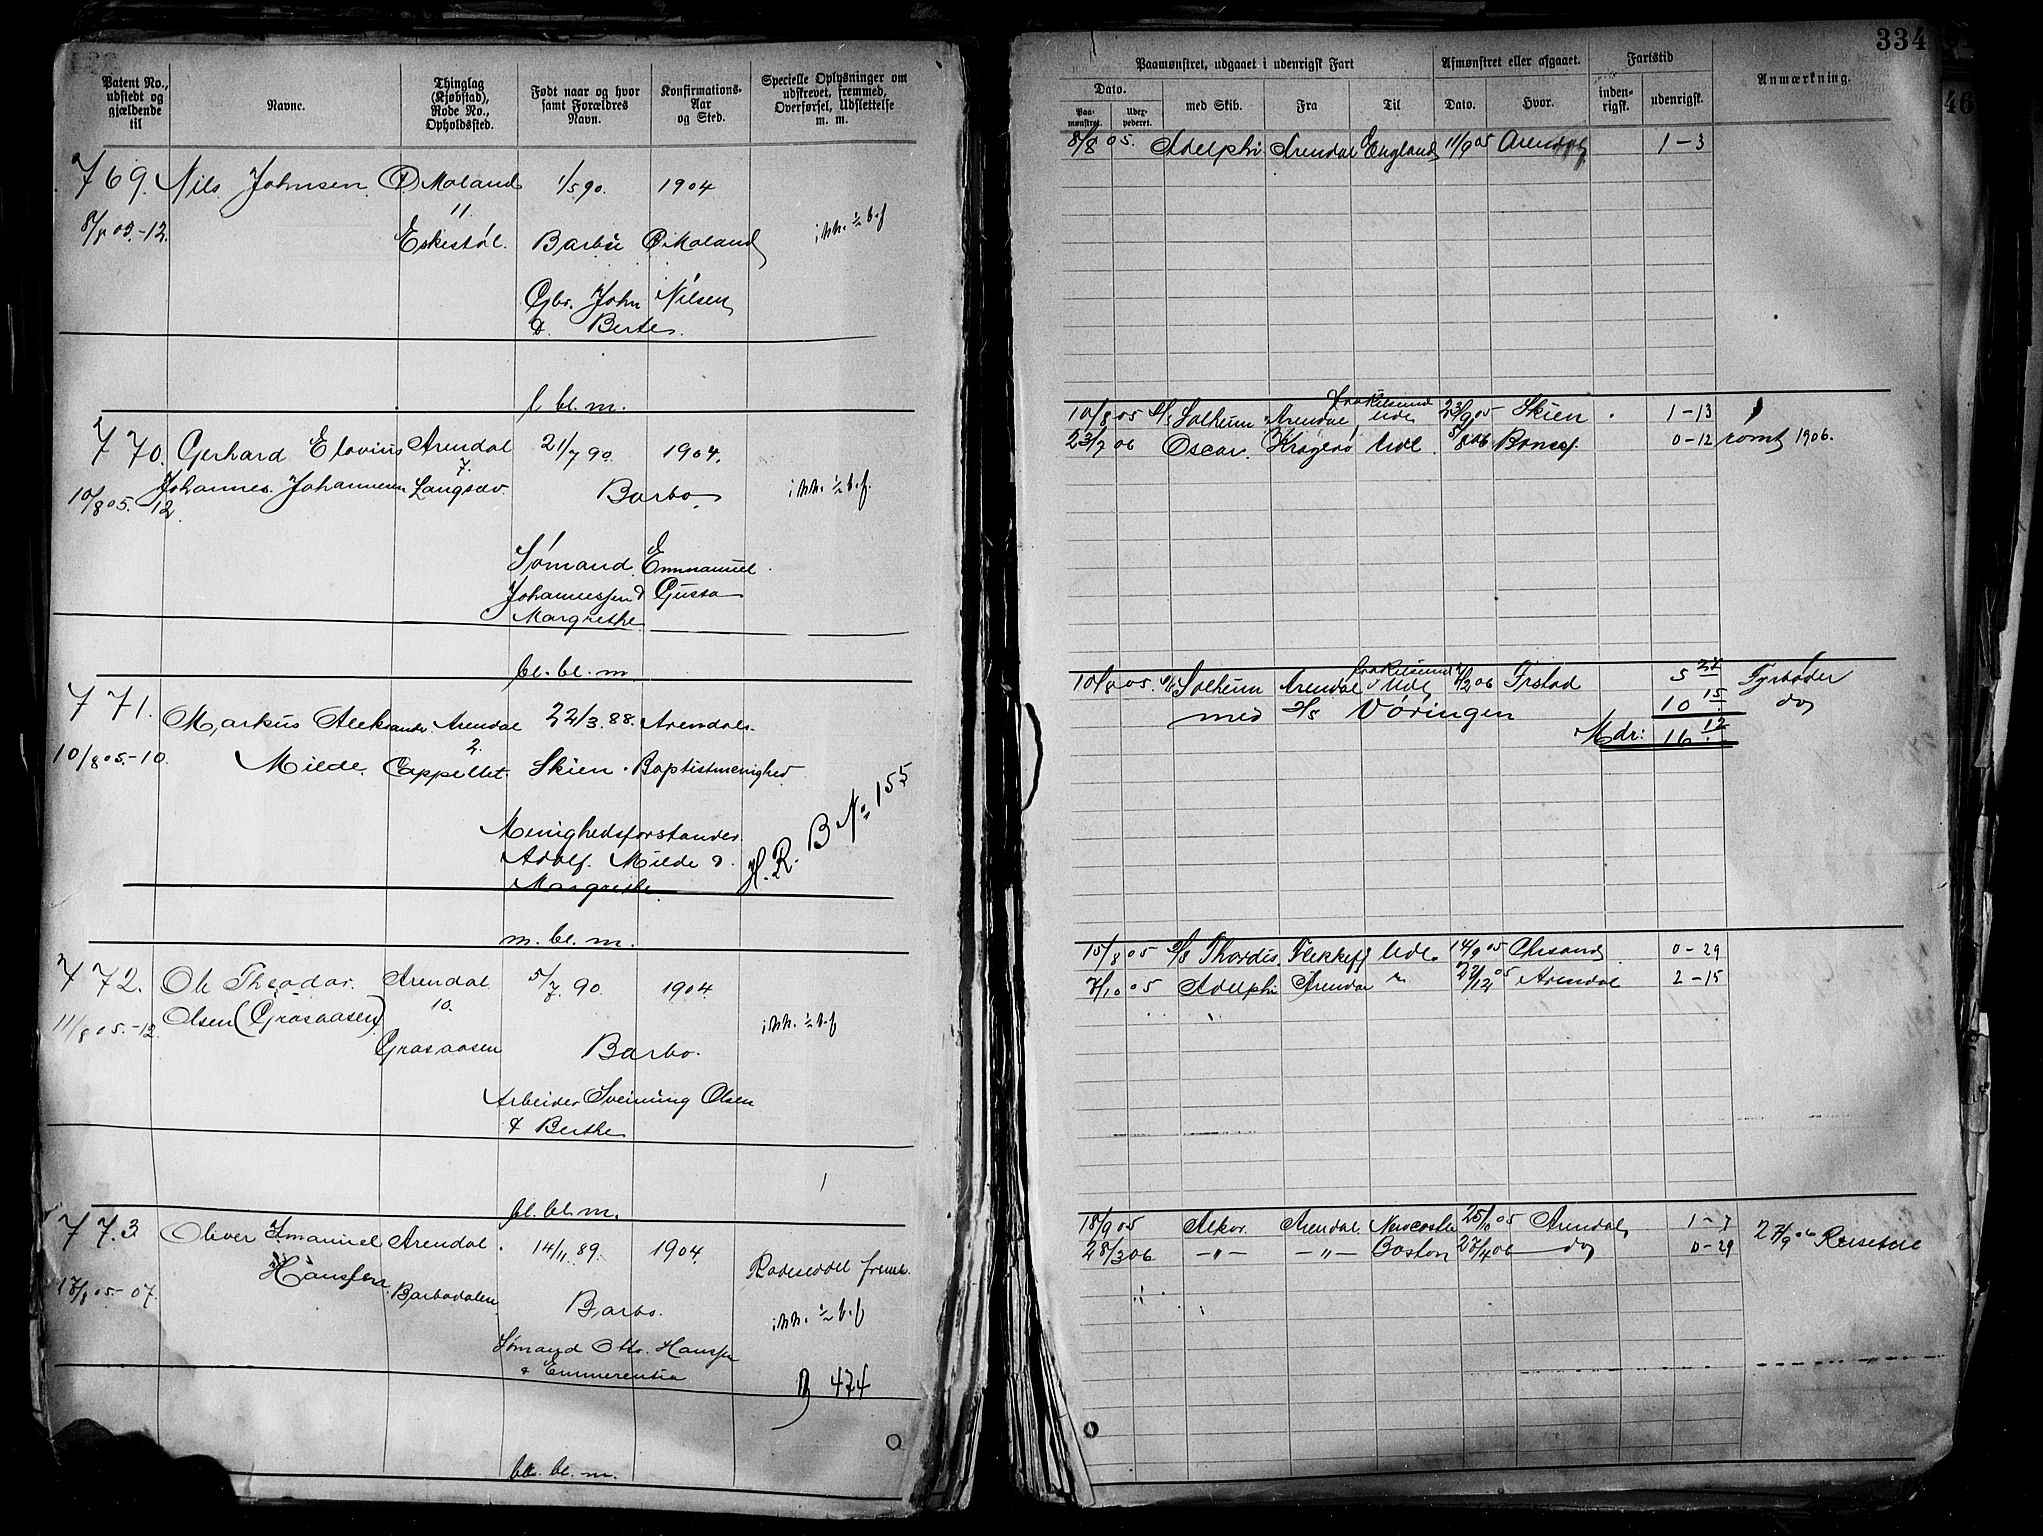 Patent No., udstedt og gjældende til
Navne.
Thinglag (Kjøbstad), Rode No., Opholdssted.
Født naar og hvor samt Forældres Navn.
Konfirmations-Aar og Sted.
Specielle Oplysninger om udskrevet, fremmed, Overførsel, Udslettelse m. m.
769. Nils Johnsen Ø Moland 1/5 90. 1904
11
8/8 05.-12. Eskestøl. Barbu Ø Moland
Gbr. John Nilsen
& Berte.
l bl. m.
770. Gerhard Elovius Arendal 21/7 90. 1904.
7.
10/8 05. 12. Johannes Johannesen Langsæv. Barbo
Sømand Emmanuel
Johannessen & Gusta
Margrethe
bl. bl. m.
771. Markus Aleksander Arendal 22/3. 88. Arendals.
2.
10/8 05.-10. Milde. Cappellet. Skien. Baptistmenighed
H. R. B No 155
Menighedsforstander
Adolf Milde &
Margrethe
m. bl. m.
772. Ole Theodor Arendal 5/7 90 1904.
10.
11/8 05.-12. Olsen (Grasaasen) Grasaasen Barbo.
Arbeider Sveinung Olsen
& Berthe
bl. bl. m.
773 Oliver Imanuel Arendal. 14/11 89. 1904.
Hanssen Barbodalen Rodeseddel
17/8 05-07. Barbo.
Sømand Otto Hanssen
& Emmerentia
B 474
bl. bl. m.
334
46
Paamønstret, udgaaet i udenrigsk Fart
Afmønstret eller afgaaet.
Fartstid
Anmærkning.
Dato.
Paamønstret.
Uderpederet.
med Skib.
Fra
Til
Dato.
Hvor.
indenrigsk.
udenrigsk.
8/8 05. Adelphi Arendal England 11/9 05 Arendal 1-3
10/8 05 D/S Solheim Arendal Udl 23/9 05 Skien 1-13
23/7 06 Oscar. Kragerø Udl. 5/8 06 0-12 rømt 1906.
10/8 05. D/S Solheim Arendal Udl 2/2 06 Frstad 5 27 Fyrbøder
med D/S Vøringen 10 15 do
Mdr: 16 12
15/8 05 D/S Thordis Flekkefj Udl. 14/9 05 Chrsand 0-29
7/10 05 Adelphi Arendal 22/12 05 Arendal 2-15
18/9 05 Alkor. Arendal Newcastle 25/10 05 Arendal 1-7
28/3 06 -"- -"- Boston 27/4 06 do 0-29